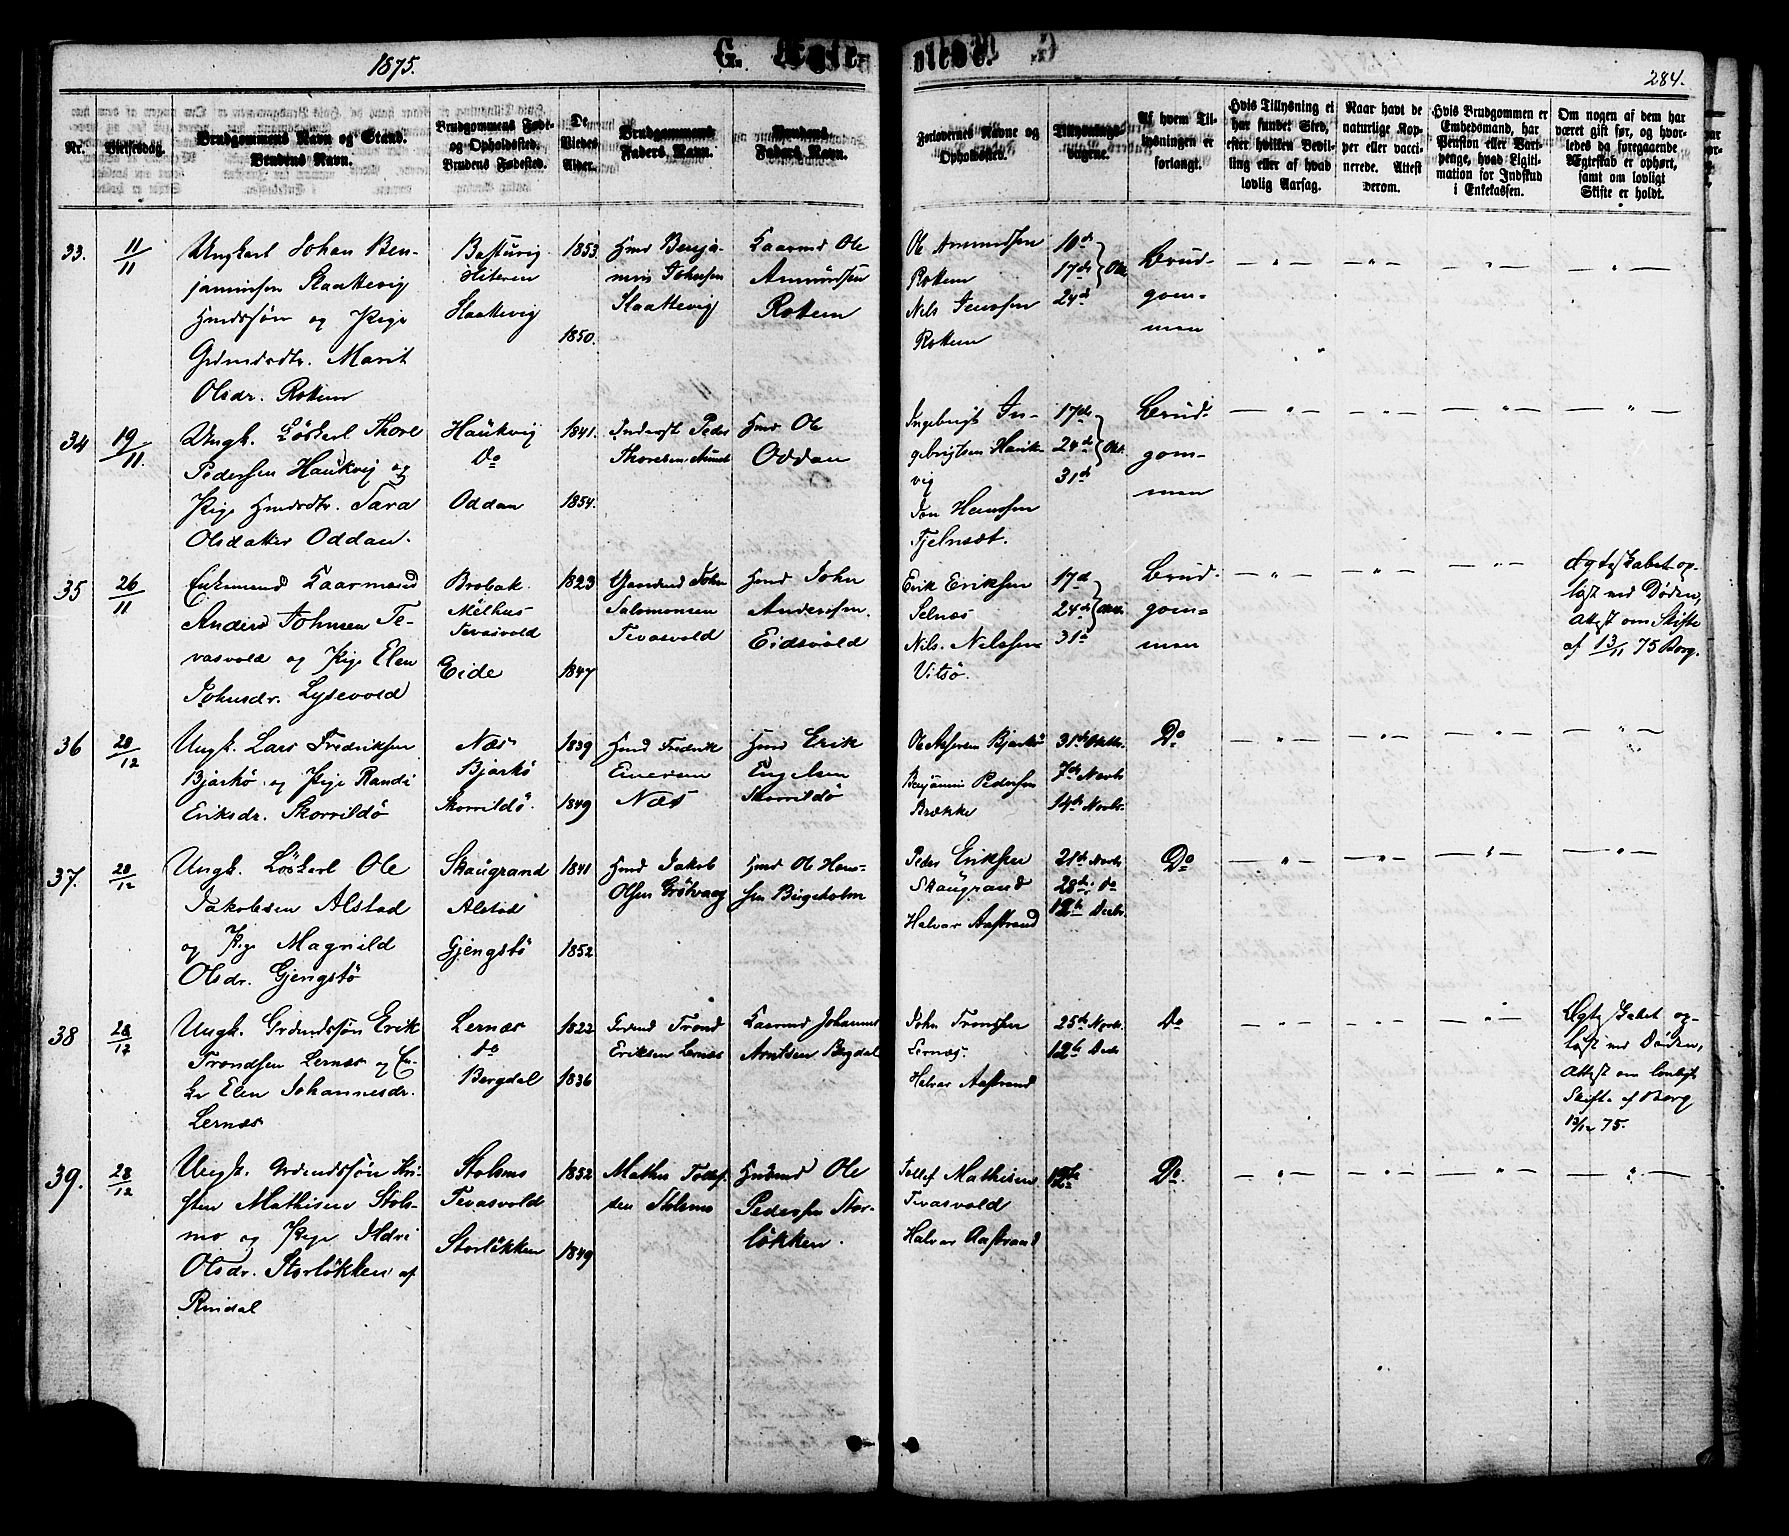 1875.
G. Ægte-
viede.
284.
Nr.
Vielsesdag.
Brudgommens Navn og Stand.
Brudens Navn.
Brudgommens Føde-
og Opholdssted.
Brudens Fødested.
De
Viedes
Alder.
Brudgommens
Faders Navn.
Brudens
Faders Navn.
Forlovernes Navne og
Opholdssted.
Tillysnings-
dagene.
Af hvem Til-
lysningen er
forlangt.
Hvis Tillysning ei
har fundet Sted,
efter hvilken Bevil-
ling eller af hvad
lovlig Aarsag.
Naar havt de
naturlige Kop-
per eller vacci-
nerede. Attest
derom.
Hvis Brudgommen er
Embedsmand, har
Pension eller Vart-
penge, hvad Ligiti-
mation for Indskud
i Enkekassen.
Om nogen af dem har
været gift før, og hvor-
ledes da foregaaende
Ægteskab er ophørt,
samt om lovligt
Skifte er holdt.
33.
11/11
Ungkarl Johan Ben-
jaminsen Slaattevig
Hmdssøn og Pige
Grdmdsdtr. Marit
Olsdr. Rottem
Bastuvig
Hiteren
Slaattevig
1853
1850.
Hmd Benja-
min Johnsen
Slaattevig
Gaarmd Ole
Amundsen
Rottem
Ol Amundsen
Rottem
Nils Jenssen
Rottem
10de
17de
24de
Okt
Brud-
gom-
men
34
19/11.
Ungk. Løskarl Thore
Pedersen Haukvig og
Pige Hmdsdtr. Sara
Olsdatter Oddan.
Haukvig
do
Oddan
1841.
1854.
Inderst Peder
Thoresen Aunet
Hmd Ole
Oddan
Ingebrigt In-
gebrigtsen Hauk-
vig
Jon Hemssen
Fjelnset.
17de
24de
31de
Okt.
Brud-
gom-
men
35
26/11
Enkemand Gaarmand
Anders Johnsen Te-
vasvold og Pige Elen
Johnsdr. Lysevold
Brobak
Melhus
Tevasvold
Eide
1823
1847
Gaardmd John
Salomonsen
Tevasvold
Hmd John
Andersen
Eidsvold
Erik Eriksen
Selnæs
Nils Nilssen
Vitsø.
17de
24de
31de
Okt.
Brud-
gom-
men
Ægteskabet op-
løst ved Døden,
Attest om Skifte
af 13/11 75 Borg.
36
28/12
Ungk. Lars Fredriksen
Bjarkø og Pige Randi
Eriksdr. Skorrildø
Næs
Bjarkø
Skorrildø.
1839
1849
Hmd Fredrik
Einersen
Næs
Hmd Erik
Engelsen
Skorrildø
Ole Bjarkø
Benjamin Pedersen
Brække
31de Oktbr.
7de Novbr.
14de Novbr.
Do
37.
28/12
Ungk. Løskarl Ole
Jakobsen Alstad
og Pige Magnild
Olsdr. Gjengstø
Skaugrand
Alstad
Gjengstø
1841
1852
Hmd Jakob
Olsen Grøtvaag
Hmd Ole Hans-
sen Birgeholm
Peder Eriksen
Skaugrand
Halvar Aastrand
21de Novbr.
28de do
12te Decbr.
Do
38
28/12
Ungk. Grdmdssøn Erik
Trondsen Lernæs og En-
ke Elen Johannesdr.
Lernæs
Lernæs
do
Bergdal
1822
1836
Grdmd Trond
Eriksen Lernæs
Gaarmd Johannes
Arntsen Bergdal
John Tronsen
Lernæs.
Halvar Aastrand
25de Novbr.
12te Decbr
Do
Ægteskabet op-
løst ved Døden,
Attest om lovligt
Skifte af Borg
13/12 75.
39.
28/12
Ungk. Grdmdssøn Kri-
sten Mathisen Stols-
mo og Pige Ildri
Olsdr. Storløkken af
Rindal
Stolsmo
Tevasvold
Storløkken
1852
1849
Mathis Tollef-
sen Stolsmo
Husmd Ole
Pedersen Stor-
løkken.
Tollef Mathisen
Tevasvold
Halvar Aastrand
12te
Do